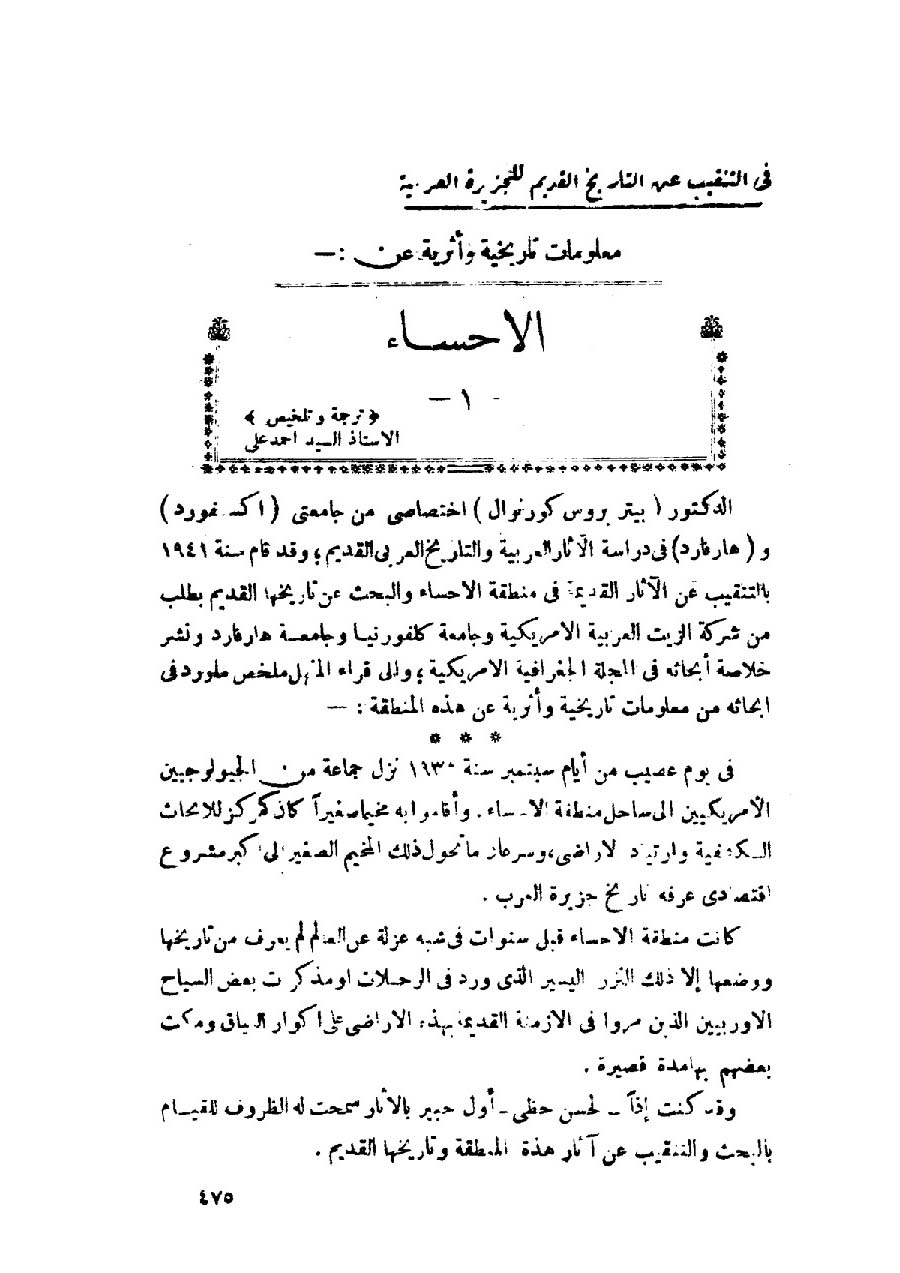 فى التنقيب عن التاريخ القديم للجزيرة العربية
معلومات تاريخية وأثرية عن : —
الاحساء
- ١ -
﴿ ترجمة وتلخيص ﴾
الاستاذ السيد احمد على
الدكتور ( بيتر بروس كورنوال ) اختصاصى من جامعتى ( اكسفورد )
و ( هارفارد ) فى دراسة الآثار العربية والتاريخ العربى القديم ؛ وقد قام سنة ١٩٤١
بالتنقيب عن الآثار القديمة فى منطقة الاحساء والبحث عن تاريخها القديم بطلب
من شركة الزيت العربية الامريكية وجامعة كلفورنيا وجامعة هارفارد ونشر
خلاصة أبحاثه فى المجلة الجغرافية الامريكية ؛ والى قراء المنهل ملخص ماورد فى
ابحاثه من معلومات تاريخية وأثرية عن هذه المنطقة : —
* * *
فى يوم عصيب من أيام سبتمبر سنة ١٩٣٠ نزل جماعة من الجيولوجيين
الأمريكيين الى ساحل منطقة الاحساء . وأقاموا به مخيما صغيراً كان كمركز للابحاث
الكشفية وارتياد الاراضى ، وسرعان ماتحول ذلك المخيم الصغير الى اكبر مشروع
اقتصادى عرفه تاريخ جزيرة العرب .
كانت منطقة الاحساء قبل سنوات فى شبه عزلة عن العالم لم يعرف من تاريخها
ووضعها إلا ذلك النزر اليسير الذى ورد فى الرحلات او مذكرات بعض السياح
الاوربيين الذين مروا فى الازمنة القديمة بهذه الاراضى على اكوار النياق ومكث
بعضهم بها مدة قصيرة .
وقد كنت إذاً - لحسن حظى - أول خبير بالآثار سمحت له الظروف للقيام
بالبحث والتنقيب عن آثار هذة المنطقة وتاريخها القديم .
٤٧٥